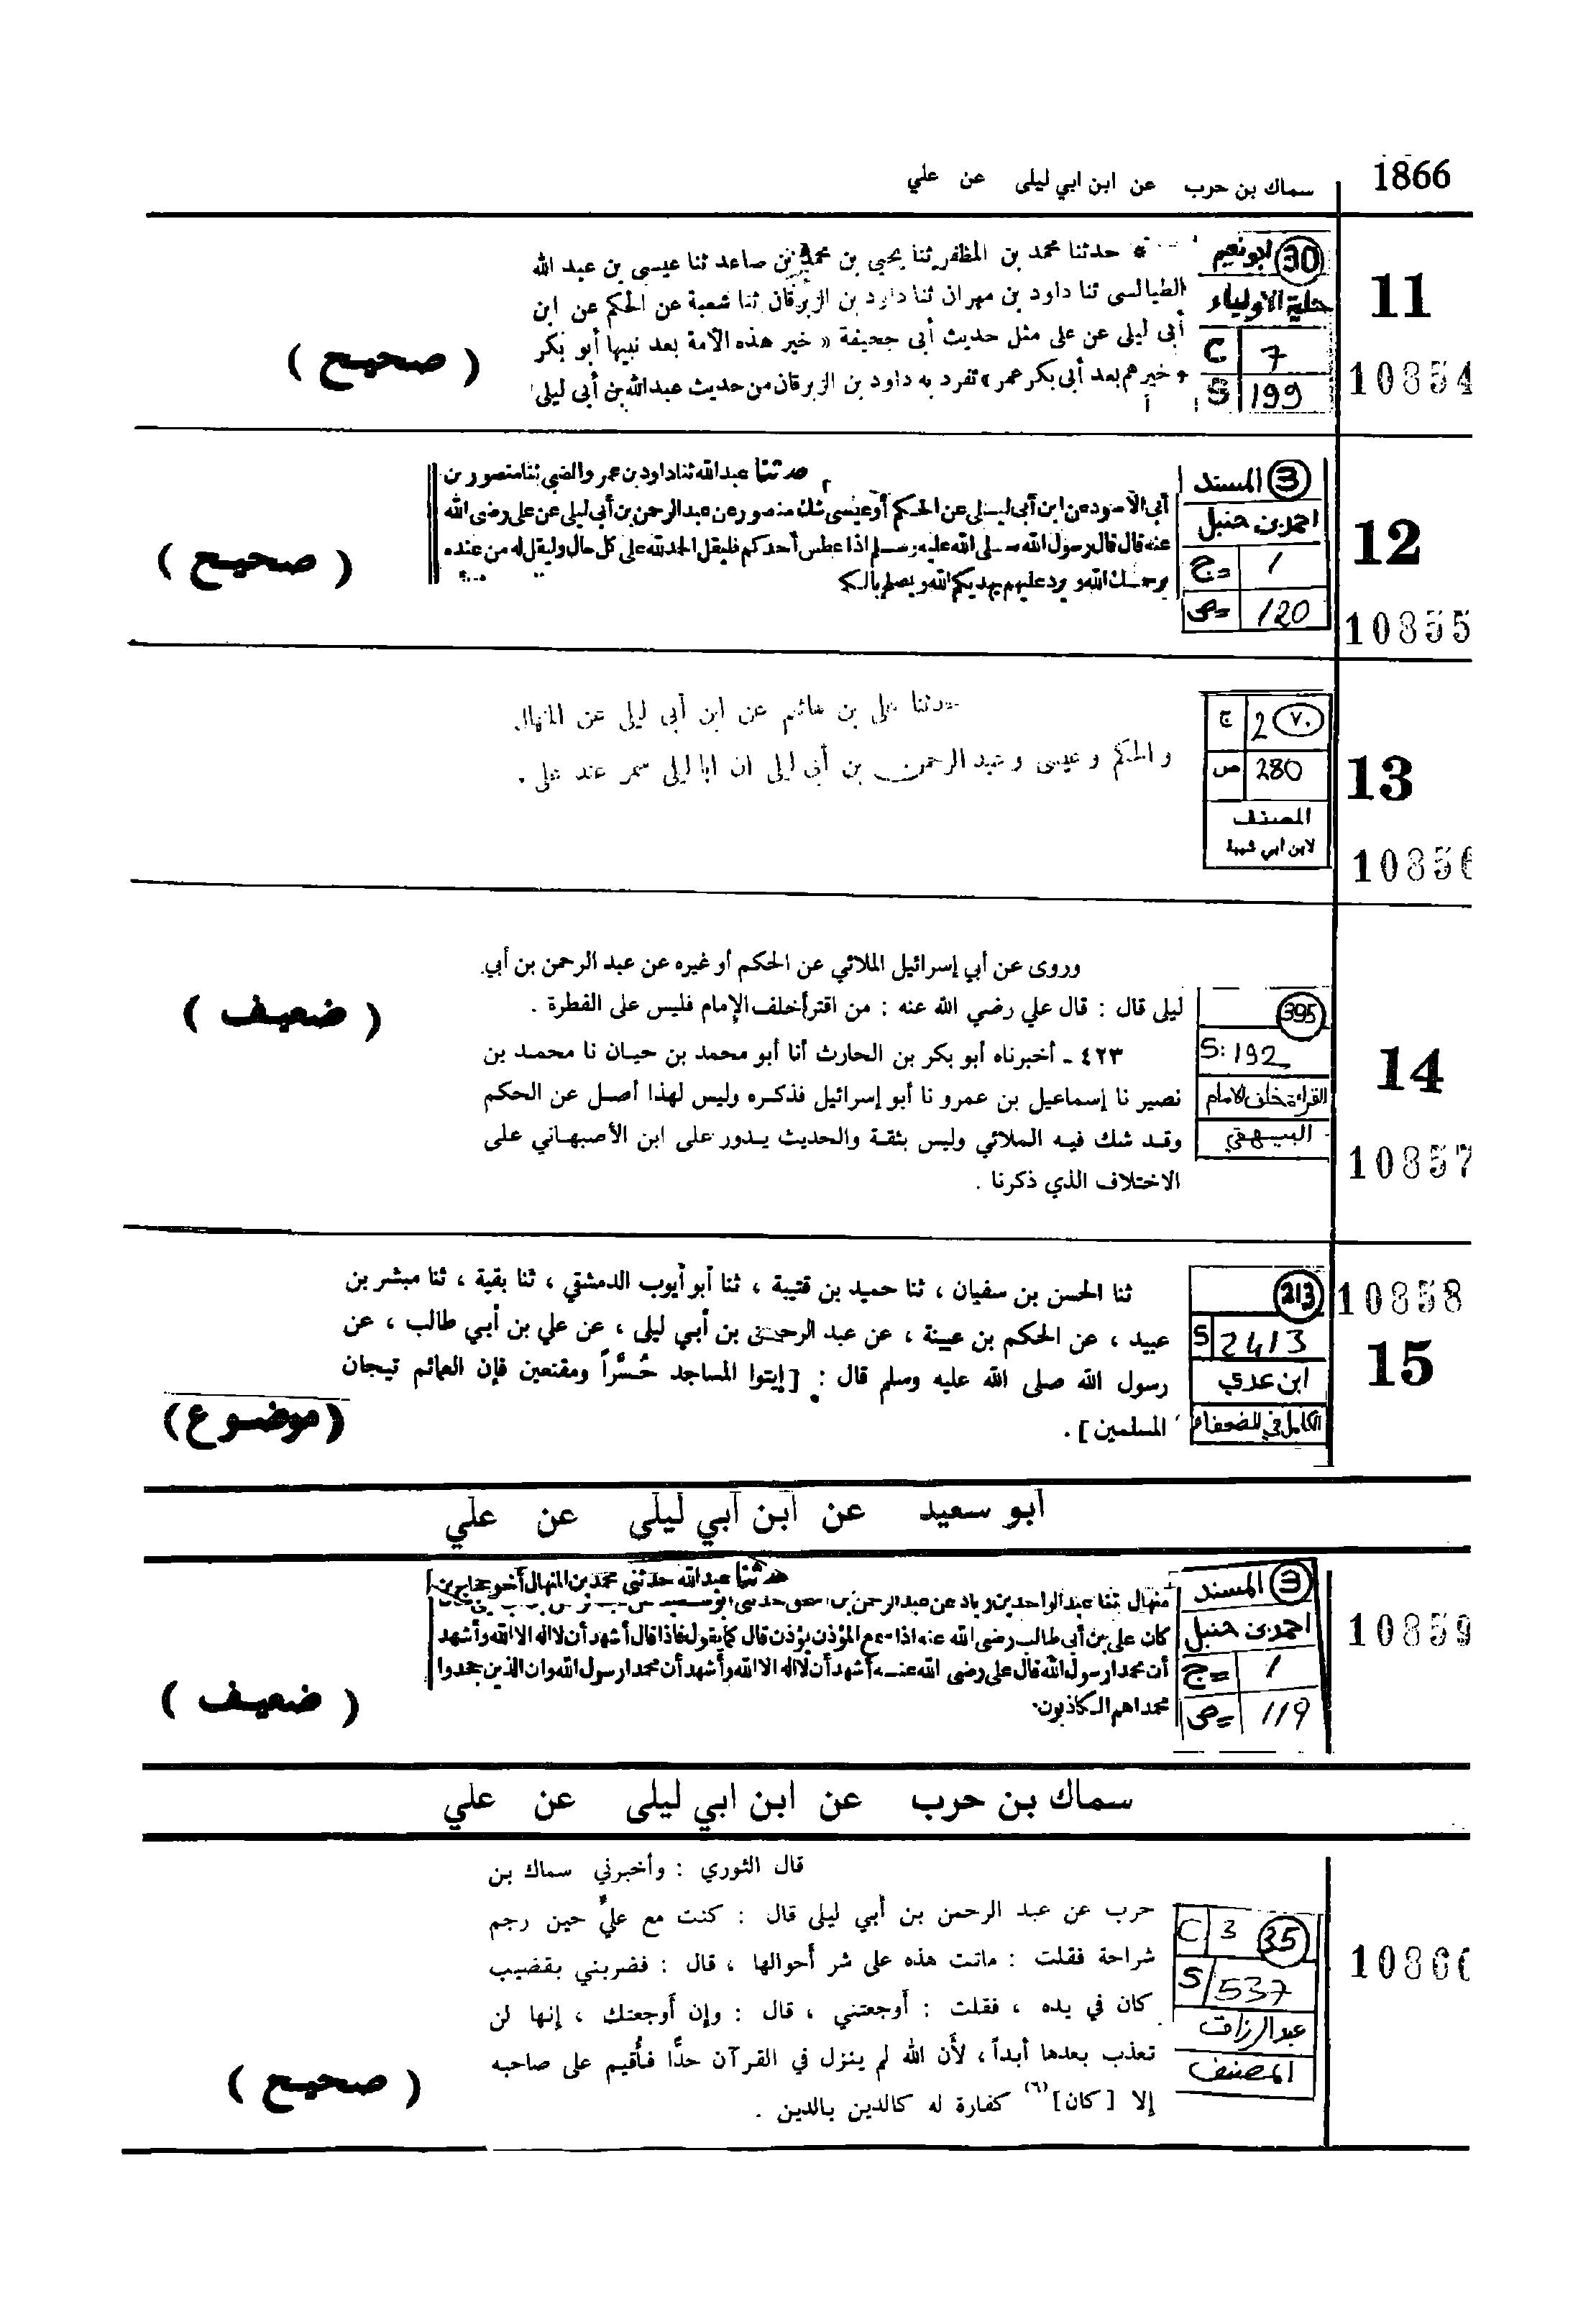 1866
سماك بن حرب عن ابن ابي ليلى عن علي
11
10854
30 ابو نعيم
حلية الاولياء
C 7
S 199
* حدثنا محمد بن المظفر ثنا يحيى بن محمد بن صاعد ثنا عيسى بن عبد الله
الطيالسى ثنا داود بن مهران ثنا داود بن الزبرقان ثنا شعبة عن الحكم عن ابن
أبى ليلى عن على مثل حديث أبى جحيفة « خير هذه الأمة بعد نبيها أبو بكر
وخيرهم بعد أبى بكر عمر » تفرد به داود بن الزبرقان من حديث عبد الله بن أبى ليلى
( صحيح )
12
10855
3 المسند
احمد بن حنبل
ج= 1
ص= 120
حدثنا عبد الله ثنا داود بن عمرو الضبى ثنا منصور بن
أبى الأسود عن ابن أبى ليلى عن الحكم أو عيسى شك منصور عن عبد الرحمن بن أبى ليلى عن على رضى الله
عنه قال قال رسول الله صلى الله عليه وسلم اذا عطس أحدكم فليقل الحمد لله على كل حال وليقل له من عنده
يرحمك الله ويرد عليهم يهديكم الله ويصلح بالكم
( صحيح )
13
10856
ج 2 ٧٠
ص 280
المصنف
لابن أبي شيبة
حدثنا علي بن هاشم عن ابن أبي ليلى عن المنهال
والحكم وعيسى وعبد الرحمن بن أبي ليلى ان ابا ليلى سمر عند علي .
14
10857
395
S: 192
القراءة خلف الامام
البيهقي
وروى عن أبي إسرائيل الملائي عن الحكم أو غيره عن عبد الرحمن بن أبي
ليلى قال : قال علي رضي الله عنه : من اقترأ خلف الإمام فليس على الفطرة .
٤٢٣ ـ أخبرناه أبو بكر بن الحارث أنا أبو محمد بن حيان نا محمد بن
نصير نا إسماعيل بن عمرو نا أبو إسرائيل فذكره وليس لهذا أصل عن الحكم
وقد شك فيه الملائي وليس بثقة والحديث يدور على ابن الأصبهاني على
الاختلاف الذي ذكرنا .
( ضعيف )
10858
15
213
S 2413
ابن عدي
الكامل في الضعفاء
ثنا الحسن بن سفيان ، ثنا حميد بن قتيبة ، ثنا أبو أيوب الدمشقي ، ثنا بقية ، ثنا مبشر بن
عبيد ، عن الحكم بن عيينة ، عن عبد الرحمن بن أبي ليلى ، عن علي بن أبي طالب ، عن
رسول الله صلى الله عليه وسلم قال : [إيتوا المساجد حُسَّراً ومقنعين فإن العمائم تيجان
المسلمين] .
(موضوع)
ابو سعيد عن ابن أبي ليلى عن علي
10859
3 المسند
احمد بن حنبل
ج= 1
ص= 119
حدثنا عبد الله حدثنى محمد بن المنهال أخو حجاج بن
منهال ثنا عبد الواحد بن زياد عن عبد الرحمن بن
كان على بن أبى طالب رضى الله عنه اذا سمع المؤذن يؤذن قال كما يقول فاذا قال أشهد أن لا اله الا الله وأشهد
أن محمدا رسول الله قال على رضى الله عنه أشهد أن لا اله الا الله وأشهد أن محمدا رسول الله وان الذين جحدوا
محمدا هم الكاذبون
( ضعيف )
سماك بن حرب عن ابن ابي ليلى عن علي
10860
C 3 35
S 537
عبد الرزاق
المصنف
قال الثوري : وأخبرني سماك بن
حرب عن عبد الرحمن بن أبي ليلى قال : كنت مع عليّ حين رجم
شراحة فقلت : ماتت هذه على شر أحوالها ، قال : فضربني بقضيب
كان في يده ، فقلت : أوجعتني ، قال : وإن أوجعتك ، إنها لن
تعذب بعدها أبداً ، لأن الله لم ينزل في القرآن حدًّا فأُقيم على صاحبه
إلا [كان] (٦) كفارة له كالدين بالدين .
( صحيح )